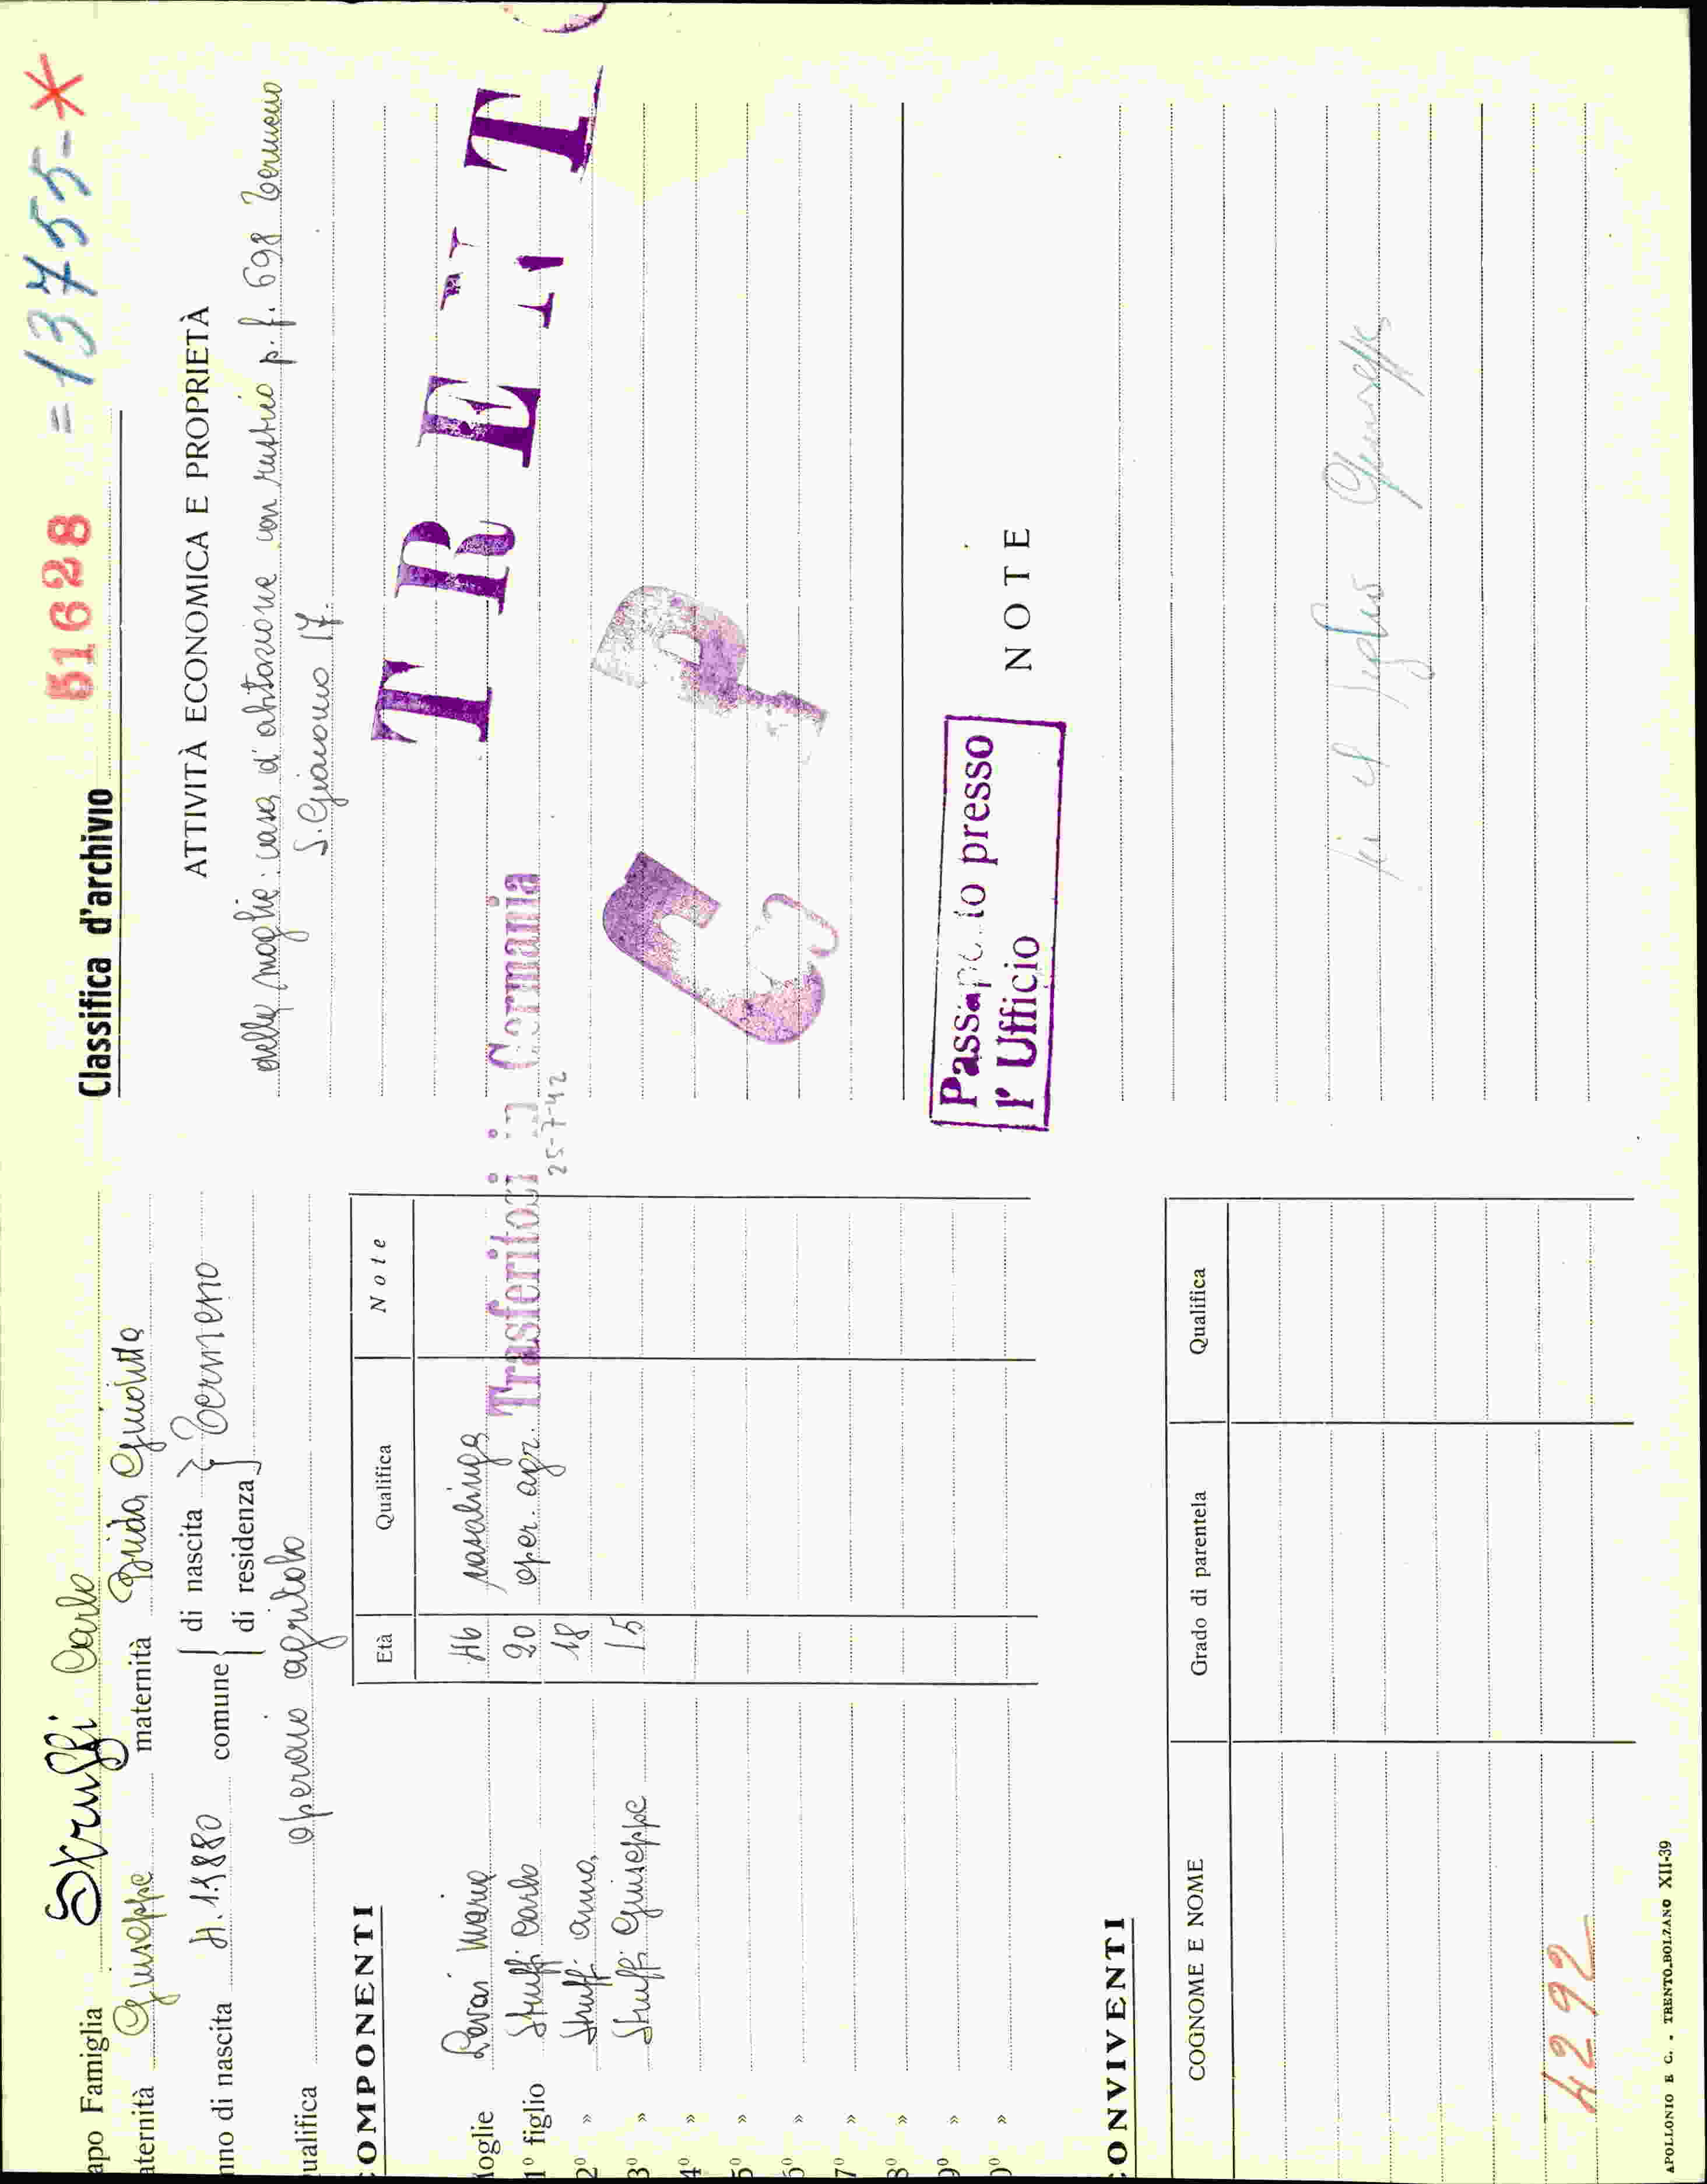 Classifica d'archivio 51628 = 13755-*
apo Famiglia Struffi Carlo
aternità Giuseppe maternità Guido Giuditta
nno di nascita 4.1.1880 comune { di nascita } Termeno
{ di residenza }
ualifica operaio agricolo
OMPONENTI
Età Qualifica Note
oglie Maria 46 casalinga
1° figlio Struffi Carlo 20 oper. agr.
2° » Struffi Anna 18
3° » Struffi Giuseppe 15
4° »
5° »
6° »
7° »
8° »
9° »
0° »
Trasferitosi in Germania
25-7-42
ONVIVENTI
COGNOME E NOME Grado di parentela Qualifica
4292
APOLLONIO E C. - TRENTO-BOLZANO XII-39
ATTIVITÀ ECONOMICA E PROPRIETÀ
della moglie: casa d'abitazione con rustico p. f. 698 Termeno
S. Giacomo 17.
T R E N T
NOTE
Passaporto presso
l'Ufficio
il figlio Giuseppe